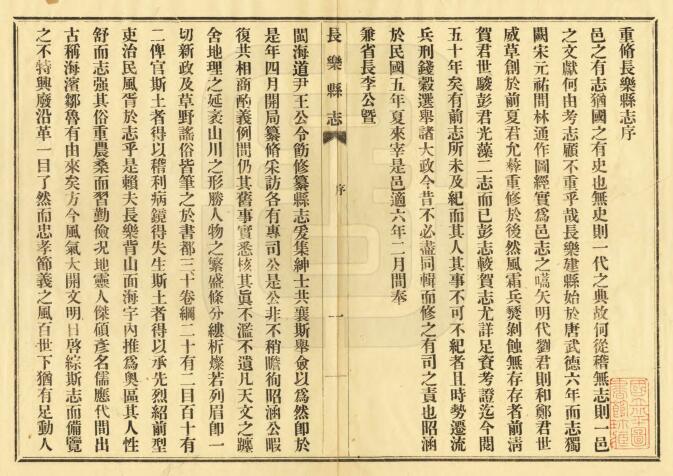 重脩長樂縣志序
邑之有志猶國之有史也無史則一代之典故何從稽無志則一邑
之文獻何由考志顧不重乎哉長樂建縣始於唐武德六年而志獨
闕宋元祐間林通作圖經實爲邑志之嚆矢明代劉君則和鄭君世
威草創於前夏君允彝重修於後然風霜兵燹剝蝕無存存者前清
賀君世駿彭君光藻二志而已彭志較賀志尤詳足資考證迄今閱
五十年矣有前志所未及紀而其人其事不可不紀者且時勢遷流
兵刑錢穀選舉諸大政今昔不必盡同輯而修之有司之責也昭涵
於民國五年夏來宰是邑適六年二月間奉
兼省長李公曁
長樂縣志
序
一
閩海道尹王公令飭修纂縣志爰集紳士共襄斯舉僉以爲然卽於
是年四月開局纂脩采訪各有專司公是公非不稍瞻徇昭涵公暇
復共相商酌義例間仍其舊事實悉核其眞不濫不遺凡天文之躔
舍地理之延袤山川之形勝人物之繁盛條分縷析燦若列眉卽一
切新政及草野謠俗皆筆之於書都三十卷綱二十有二目百十有
二俾官斯土者得以稽利病鏡得失生斯土者得以承先烈紹前型
吏治民風胥於志乎是賴夫長樂背山面海宇內推爲奥區其人性
舒而志强其俗重農桑而習勤儉况地靈人傑碩彥名儒應代間出
古稱海濱鄒魯有由來矣方今風氣大開文明日啓綜斯志而備覽
之不特興廢沿革一目了然而忠孝節義之風百世下猶有足動人